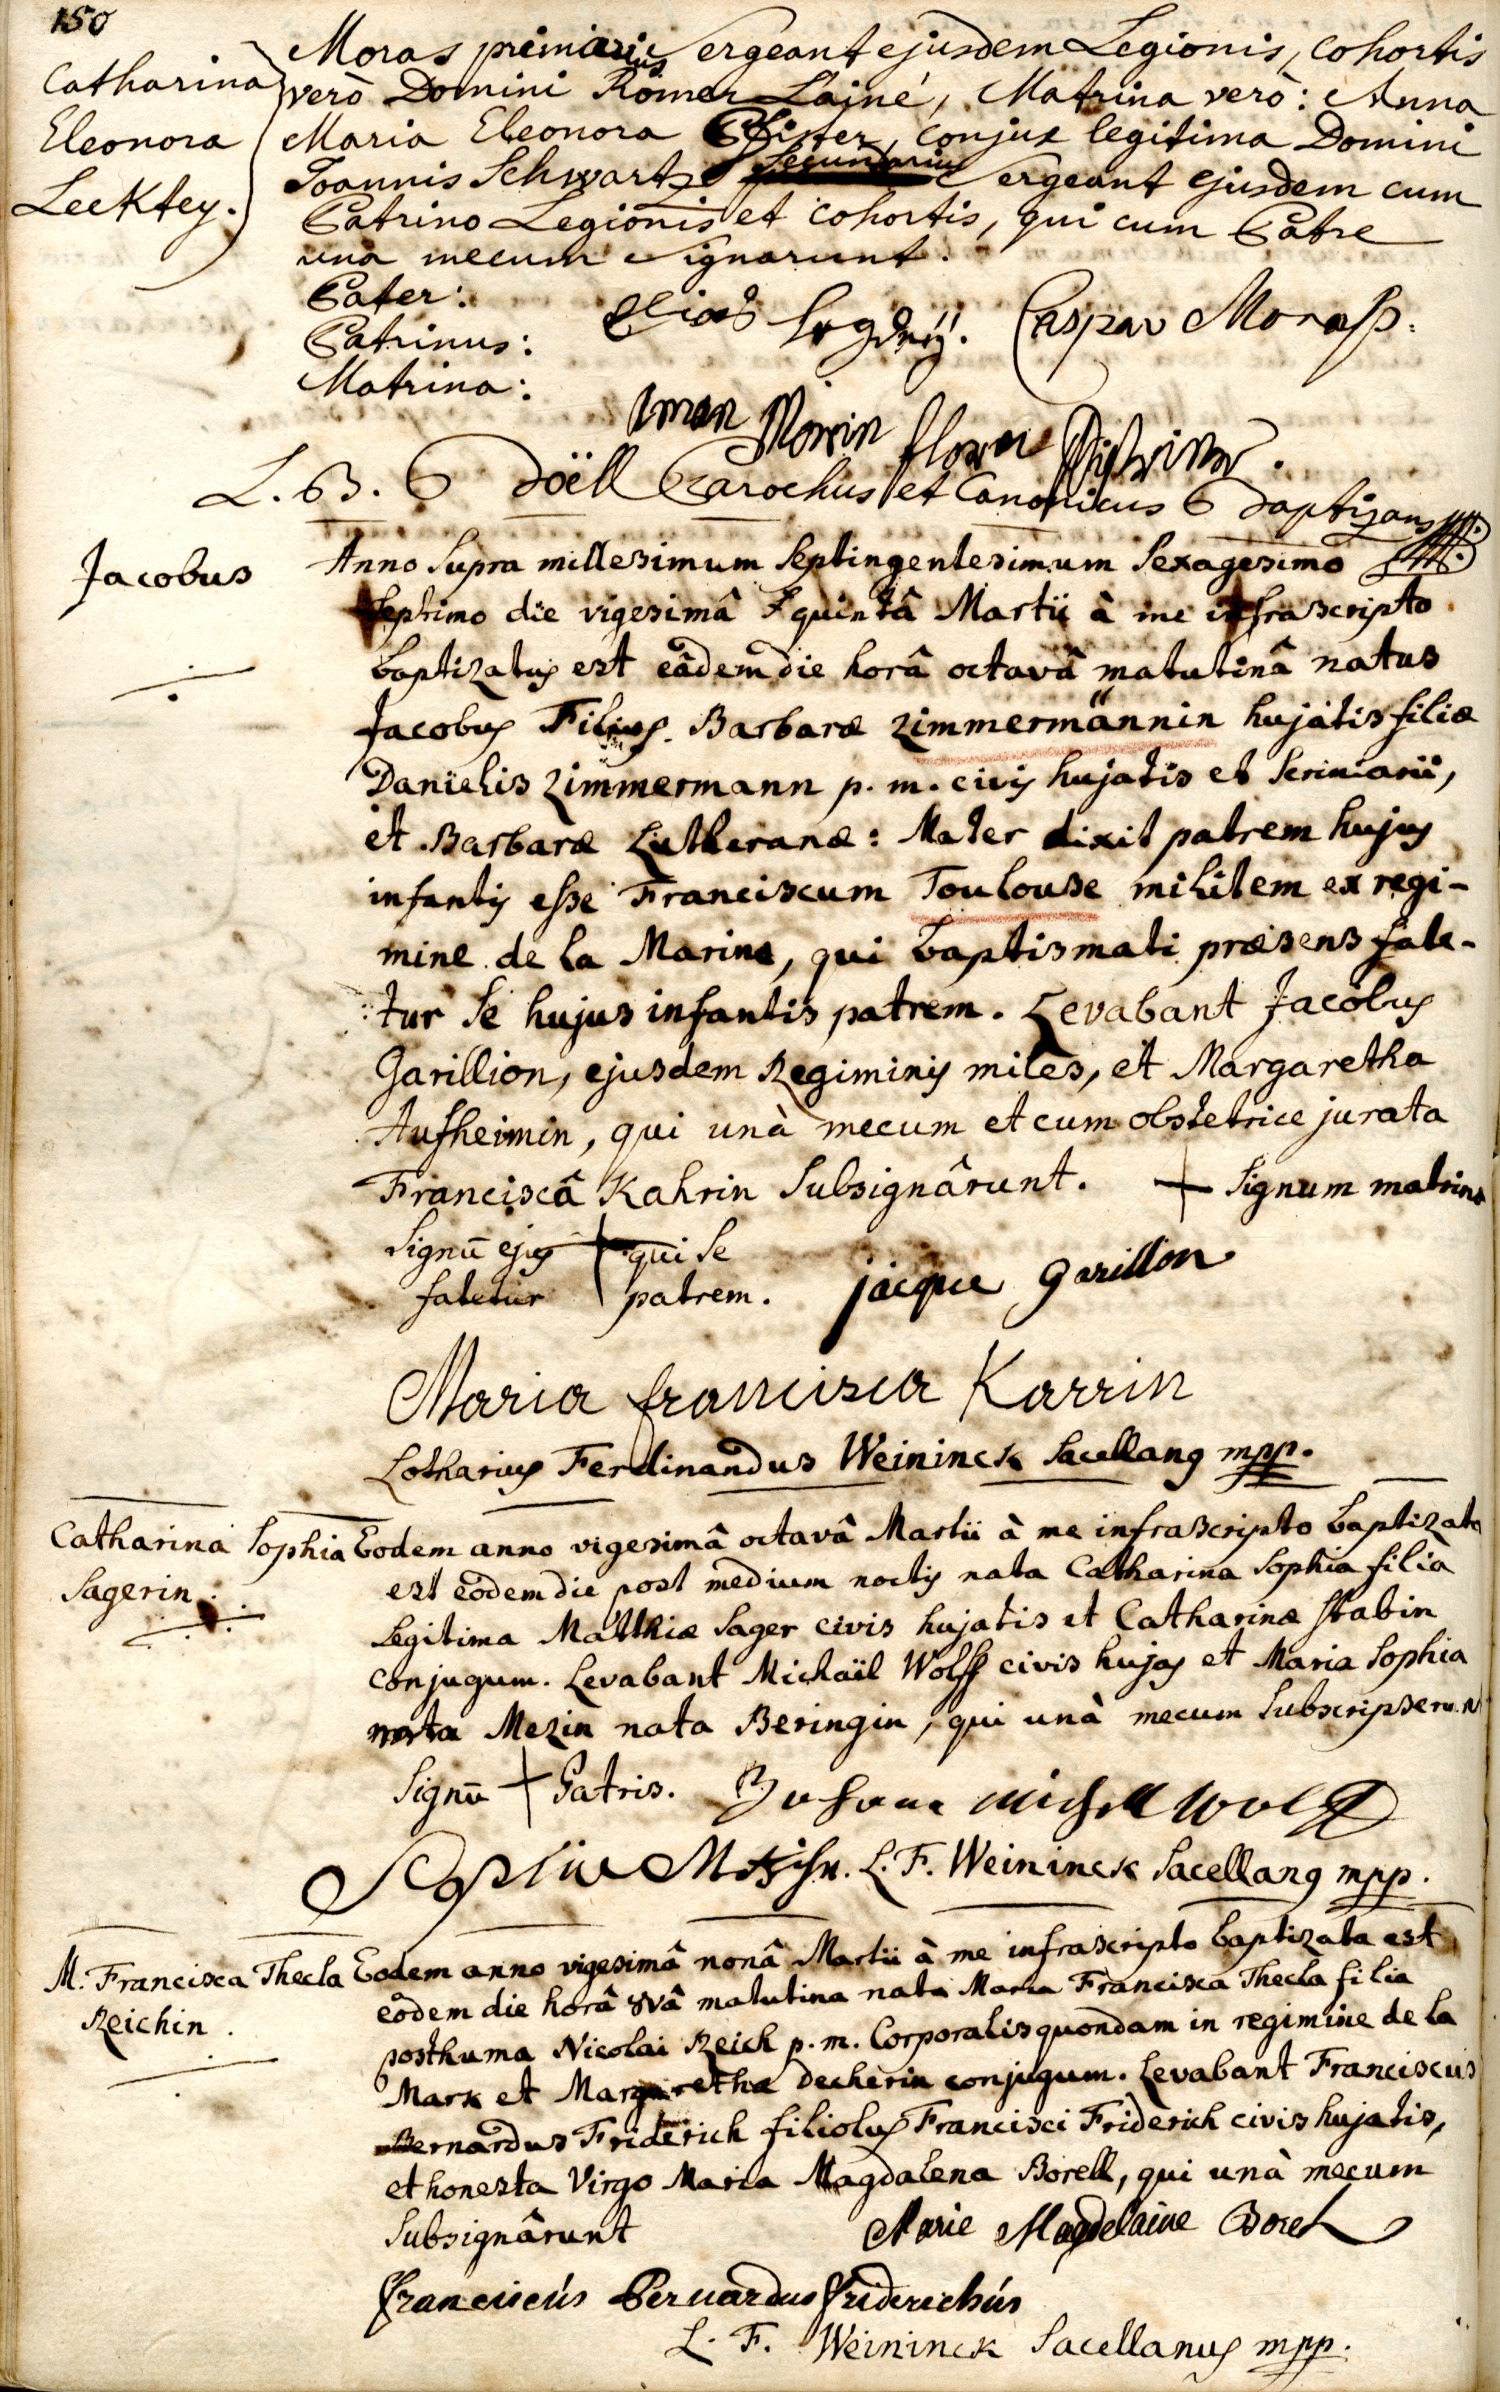 150
Catharina
Eleonora
Leektey.
Moras primarius Sergeant ejusdem Legionis, cohortis
verò Domini Römer Lainé, Matrina verò: Anna
Maria Eleonora Pfister, conjux legitima Domini
Joannis Schwartz secundarius Sergeant ejusdem cum
Patrino Legionis et cohortis, qui cum Patre
una mecum signarunt.
Pater:
Patrinus:
Matrina:
Elias
Caspar Morass.
L. B. B Doëll Parochus et Canonicus Baptizans
Jacobus
Anno supra millesimum septingentesimum sexagesimo
septimo die vigesimâ quintâ Martii à me infrascripto
baptizatus est eâdem die horâ octavâ matutinâ natus
Jacobus Filius Barbaræ Zimmermännin hujatis filiæ
Danielis Zimmermann p. m. civis hujatis et scriniarii,
et Barbaræ Lutheranæ: Mater dixit patrem hujus
infantis esse Franciscum Toulouse militem ex regi-
mine de la Marine, qui baptismati præsens fate-
tur se hujus infantis patrem. Levabant Jacobus
Garillion, ejusdem Regiminis miles, et Margaretha
Aufheimin, qui unà mecum et cum obstetrice jurata
Franciscâ Kahrin subsignârunt. + signum matrinæ
signū ejus + qui se
fatetur patrem. jacque Garillon
Maria francisca Karrin
Lotharius Ferdinandus Weininck sacellanus mpp.
Catharina Sophia
Sagerin.
Eodem anno vigesimâ octavâ Martii à me infrascripto baptizata
est eodem die post medium noctis nata Catharina Sophia filia
legitima Matthiæ Sager civis hujatis et Catharinæ Stabin
conjugum. Levabant Michaël Wolff civis hujas et Maria Sophia
Mezin nata Beringin, qui unà mecum subscripserunt
signū + Patris. Johann michell wolff
L. F. Weininck sacellanus mpp.
M. Francisca Thecla
Reichin.
Eodem anno vigesimâ nonâ Martii à me infrascripto baptizata est
eodem die horâ 8vâ matutina nata Maria Francisca Thecla filia
posthuma Nicolai Reich p. m. Corporalis quondam in regimine de la
Mark et Margarethæ Decherin conjugum. Levabant Franciscus
Bernardus Friderich filiolus Francisci Friderich civis hujatis,
et honesta Virgo Maria Magdalena Borell, qui unà mecum
subsignârunt Marie Magdelaine Borel
franciscús Bernardus friderichús
L. F. Weininck sacellanus mpp.